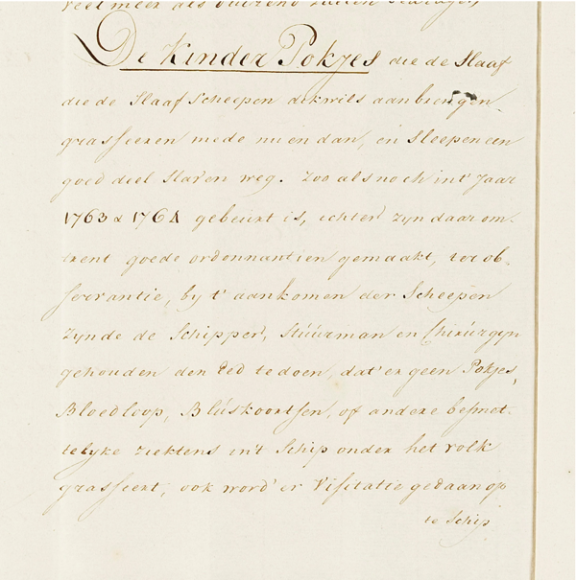 veel meer als duizend zullen bedragen
De Kinder Pokjes die de Slaaf
die de Slaaf Scheepen dikwils aanbrengen
grasseeren mede nu en dan, en sleepen een
goed deel Slaven weg. Zoo als noch int' Jaar
1763 & 1764 gebeurt is, echter zyn daar om-
trent goede ordonnantien gemaakt, tot ob-
servantie, by t' aankomen der Scheepen
zynde de Schipper, Stuurman en Chirurgyn
gehouden den Eed te doen, dat er geen Pokjes,
Bloedloop, Bluskoortsen, of andere besmet-
telyke ziektens in't Schip onder het volk
grasseert, ook word er Visitatie gedaan op
te Schip